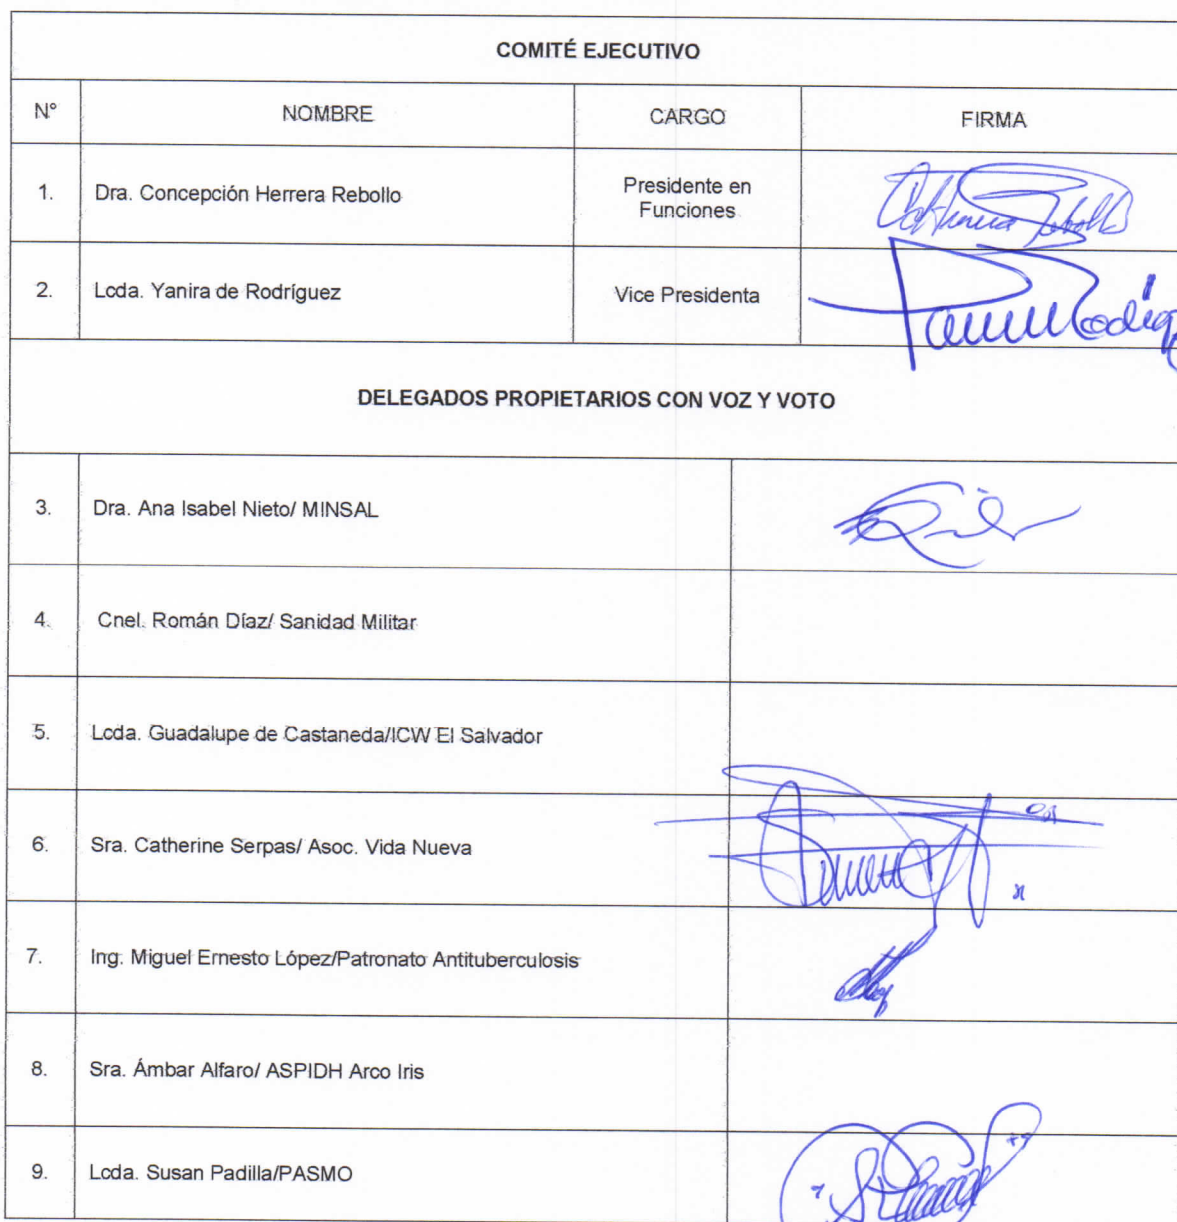 COMITÉ EJECUTIVO
N° NOMBRE CARGO FIRMA
1. Dra. Concepción Herrera Rebollo Presidente en Funciones
2. Lcda. Yanira de Rodríguez Vice Presidenta
DELEGADOS PROPIETARIOS CON VOZ Y VOTO
3. Dra. Ana Isabel Nieto/ MINSAL
4. Cnel. Román Díaz/ Sanidad Militar
5. Lcda. Guadalupe de Castaneda/ICW El Salvador
6. Sra. Catherine Serpas/ Asoc. Vida Nueva
7. Ing. Miguel Ernesto López/Patronato Antituberculosis
8. Sra. Ámbar Alfaro/ ASPIDH Arco Iris
9. Lcda. Susan Padilla/PASMO